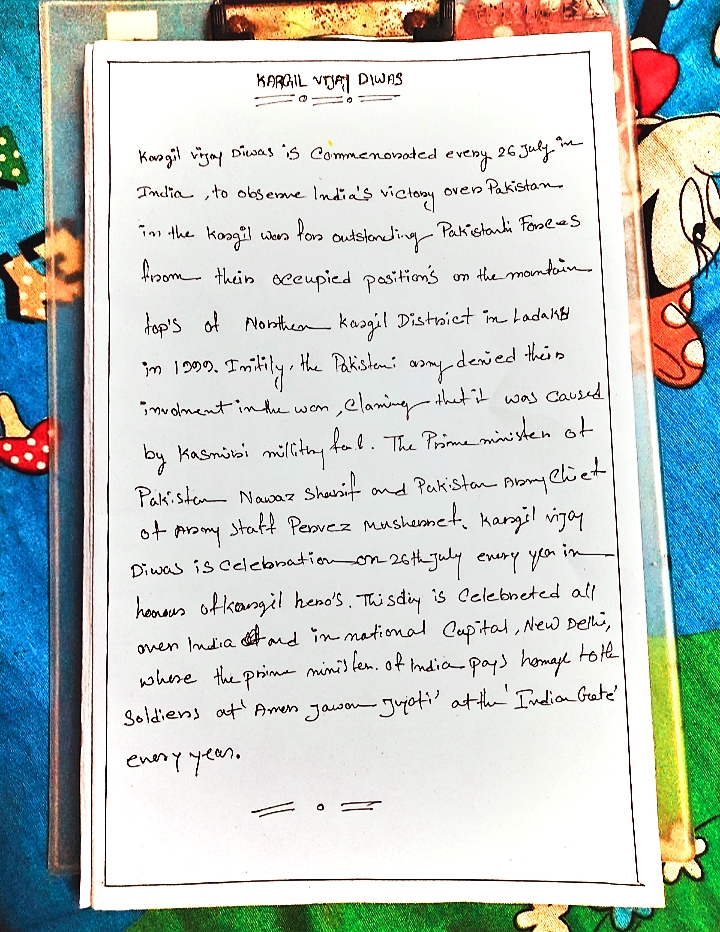 KARGIL VIJAY DIWAS
Kargil vijay Diwas is Commenorated every 26 July in
India , to observe India's victory over Pakistan
in the Kargil war for outstanding Pakistani Forces
from their occupied position's on the mountain
top's of Northen Kargil District in Ladakh
in 1999. Initily, the Pakistani army denied their
involment in the war , Claming that it was caused
by Kasmiri millitry
The Prime minister of
Pakistan Nawaz Sharif and Pakistan Army Chief
of Army staff Pervez musherref. Kargil vijay
Diwas is Celebration on 26th July every year in
honour of kargil hero's. This day is Celebreted all
over India and in national Capital, New Delhi,
where the prime minister. of India pays homage to the
Soldiers at 'Amer Jawan Jyoti' at the 'Indian Gate'
every year.